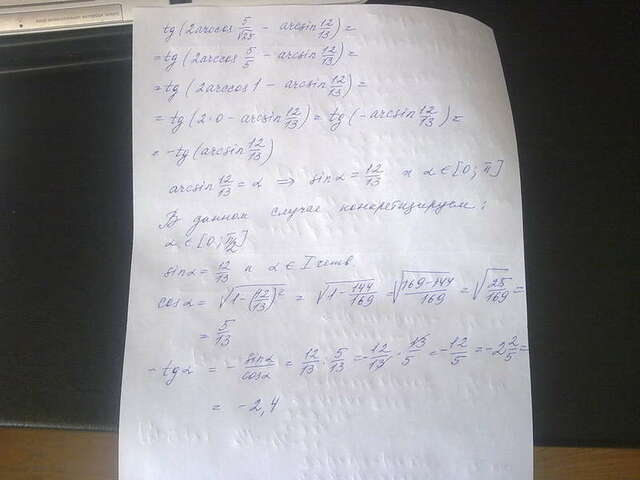 tg(2arccos 5/√25 − arcsin 12/13) =
= tg(2arccos 5/5 − arcsin 12/13) =
= tg(2arccos 1 − arcsin 12/13) =
= tg(2·0 − arcsin 12/13) = tg(−arcsin 12/13) =
= −tg(arcsin 12/13)
arcsin 12/13 = α ⇒ sinα = 12/13 и α ∈ [0; π]
В данном случае конкретизируем:
α ∈ [0; π/2]
sinα = 12/13 и α ∈ I четв
cosα = √(1 − (12/13)²) = √(1 − 144/169) = √((169−144)/169) = √(25/169) =
= 5/13
−tgα = −sinα/cosα = 12/13 : 5/13 = −12/13 · 13/5 = −12/5 = −2 2/5 =
= −2,4